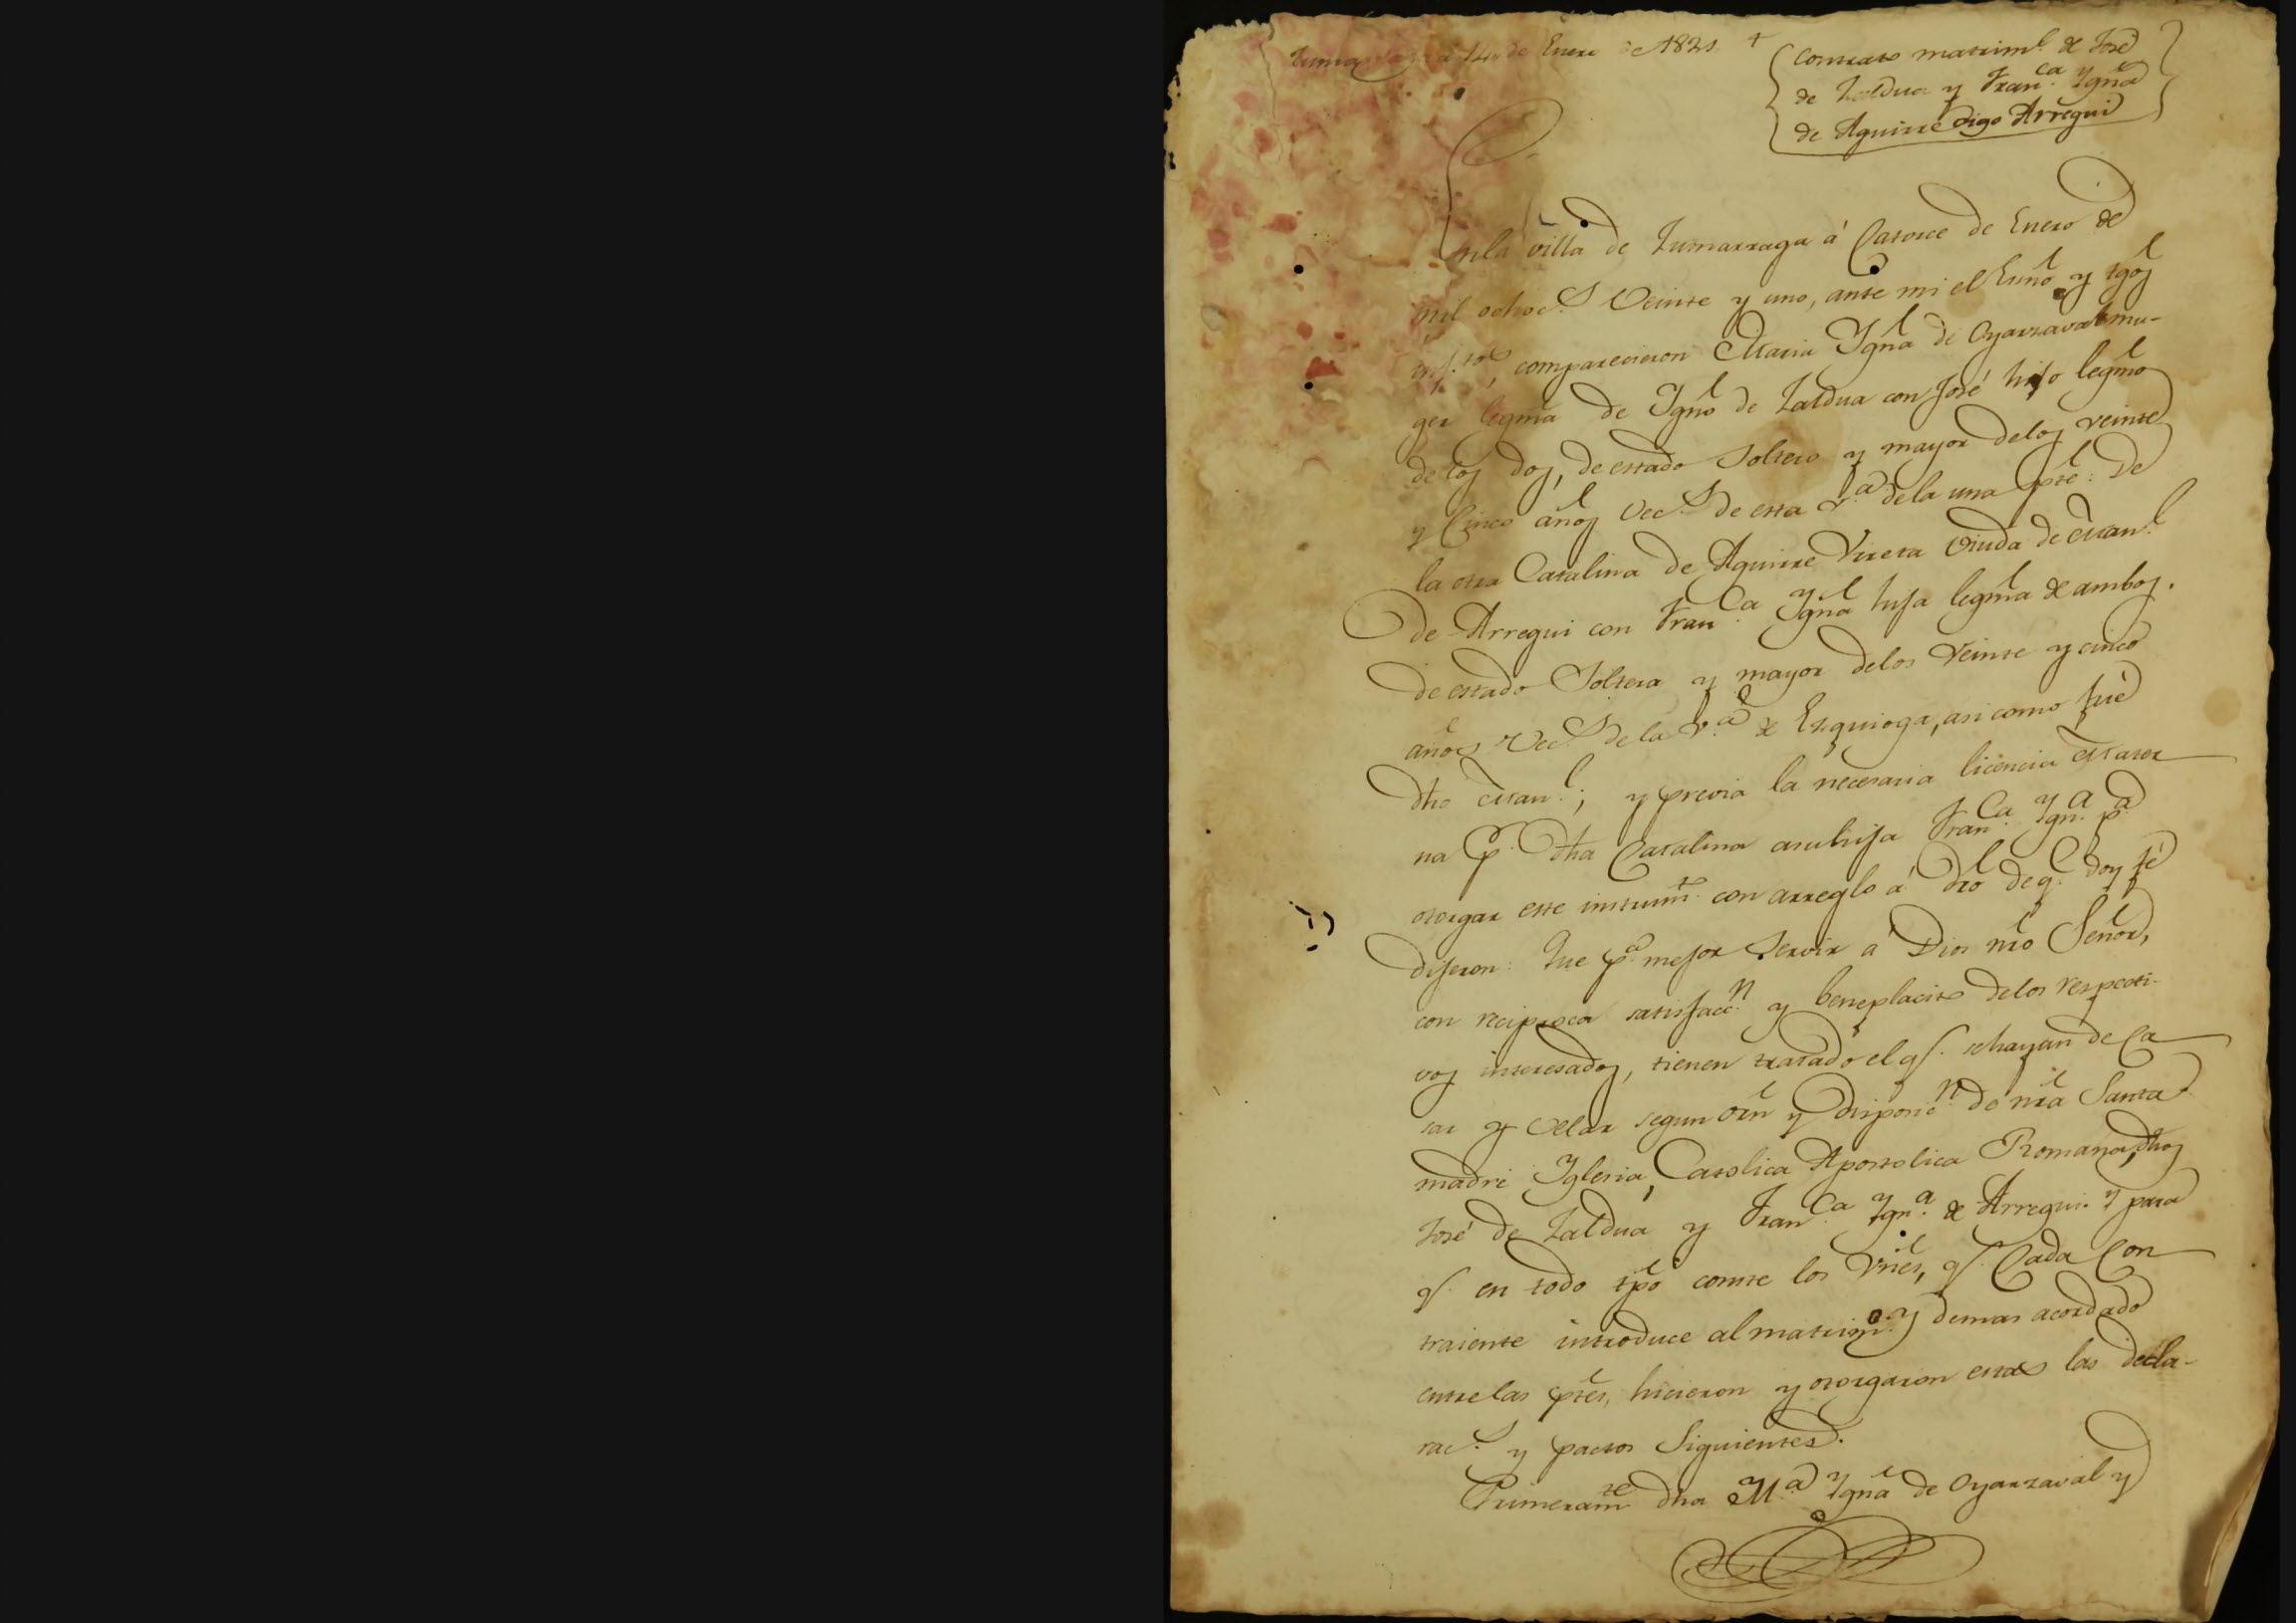 Zumarraga á 14 de Enero de 1821 +
Contrato matriml. de José
de Zaldua y Franca. Ygña
de Aguirre digo Arregui
Enla villa de Zumarraga á Catorce de Enero de
mil ochocs. Veinte y uno, ante mi el Esñno y tgos
comparecieron Maria Ygña de Oyarzaval mu-
ger legma de Ygño de Zaldua con José hijo legmo
de los dos, de estado Soltero y mayor delos veinte
y Cinco años Vecs. de esta va. dela una pte: De
la otra Catalina de Aguirre Vireta Viuda de Manl.
de Arregui con Franca. Ygña hija legma de ambos.
de estado Soltera y mayor delos Veinte y cinco
años Vecs. dela va. de Ezquioga, asi como fué
dho Manl.; y previa la necesaria licencia Mater
na pr. dha Catalina asuhija Franca. Ygna. pa.
otorgar este instrumto. con arreglo á dro deq. doy fé
dijeron: Que pa. mejor Servir á Dios nro Señor,
con reciproca satisfaccn. y beneplacito delos respecti-
vos interesados, tienen tratado el q. sehayan de Ca
sar y Velar segun orn y disposicn. de nra Santa
madre Iglesia, Catolica Apostolica Romana, dhos
José de Zaldua y Franca. Ygna. de Arregui. Y para
q. en todo tpo conste los Vnes, q. Cada Con
traiente introduce al matrimo. y demas acordado
entrelas ptes, hicieron y otorgaron estas las decla-
racs. y pactos Siguientes.
Primeramte dha Ma. Ygña de Oyarzaval y